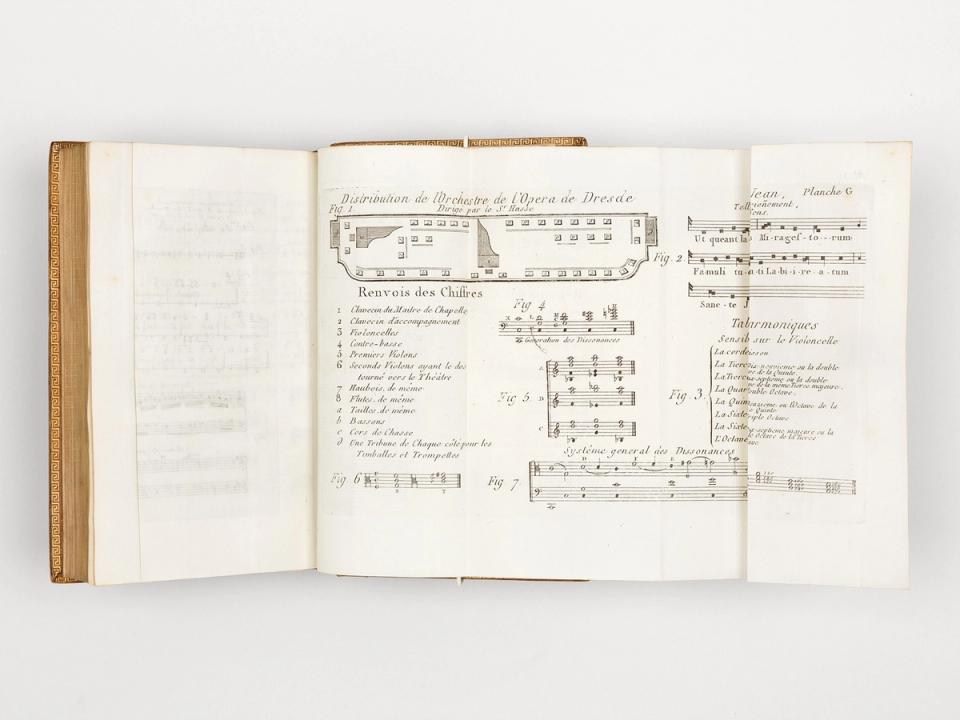 Distribution de l'Orchestre de l'Opera de Dresde
Fig. 1
Dirigé par le Sr. Hasse
Renvois des Chiffres
1 Clavecin du Maitre de Chapelle
2 Clavecin d'accompagnement
3 Violoncelles
4 Contre-basse
5 Premiers Violons
6 Seconds Violons ayant le dos
tourné vers le Théâtre
7 Hautbois, de même
8 Flutes, de même
a Tailles, de même
b Bassons
c Cors de Chasse
d Une Tribune de Chaque côté pour les
Timballes et Trompettes
Fig. 6
Fig 4
Generation des Dissonances
Fig 5.
D
C
Systême general des Dissonances
Fig 7
Jean,
Planche G
Fig. 2.
Ut queant la
Mi-ra gef-to---rum
Famuli tu-
ti La-bi-i re-a-tum
Sanc-te J
Fig. 3.
armoniques
sur le Violoncelle
La corde
La Tierce
ix-neuvieme ou la double
ve de la Quinte.
La Tierce
ix-septieme ou la double-
ve de la même Tierce majeure.
La Quar
ouble Octave.
La Quin
ouzieme, ou l'Octave de la
e Quinte
La Sixte
riple Octave
La Sixte
x-septieme majeure ou la
le Octave de la Tierce
L'Octave